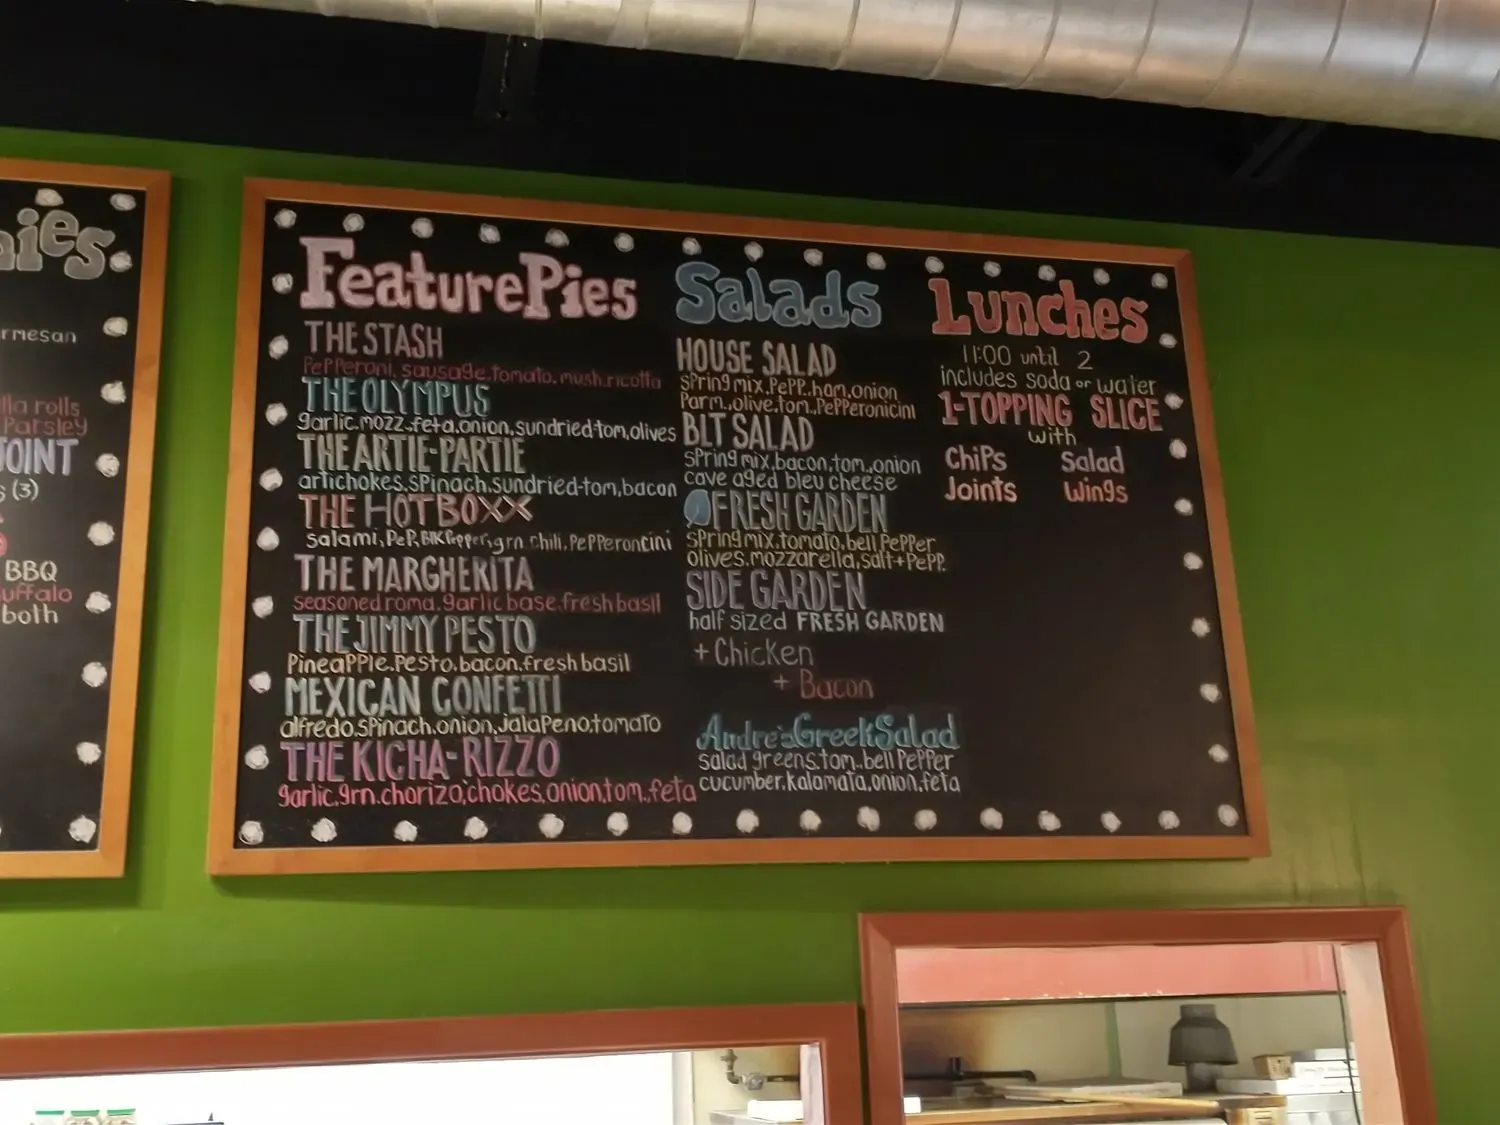 ies
rmesan
lla rolls
Parsley
JOINT
(3)
BBQ
uffalo
both
Feature Pies
THE STASH
PePPeroni, sausage, tomato, mush, ricotta
THE OLYMPUS
garlic, mozz., feta, onion, sundried-tom, olives
THE ARTIE-PARTIE
artichokes, sPinach, sundried-tom, bacon
THE HOTBOXX
salami, PeP, BlK Pepper, grn. chili, PePPeroncini
THE MARGHERITA
seasoned roma, garlic base, fresh basil
THE JIMMY PESTO
PineaPPle, Pesto, bacon, fresh basil
MEXICAN CONFETTI
alfredo, sPinach, onion, JalaPeno, tomato
THE KICHA-RIZZO
garlic, grn. chorizo, 'chokes, onion, tom., feta
Salads
HOUSE SALAD
sPring mix, PePP., ham, onion
Parm., olive, tom., PePPeronicini
BLT SALAD
sPring mix, bacon, tom., onion
cave aged bleu cheese
FRESH GARDEN
sPring mix, tomato, bell PePPer
olives, mozzarella, salt + PePP.
SIDE GARDEN
half sized FRESH GARDEN
+ Chicken
+ Bacon
Andre's Greek Salad
salad greens, tom., bell PePPer
cucumber, kalamata, onion, feta
Lunches
11:00 until 2
includes soda or water
1-TOPPING SLICE
with
ChiPs Salad
Joints Wings